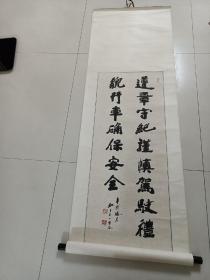 遵章守纪谨慎驾驶礼
貌行车确保安全